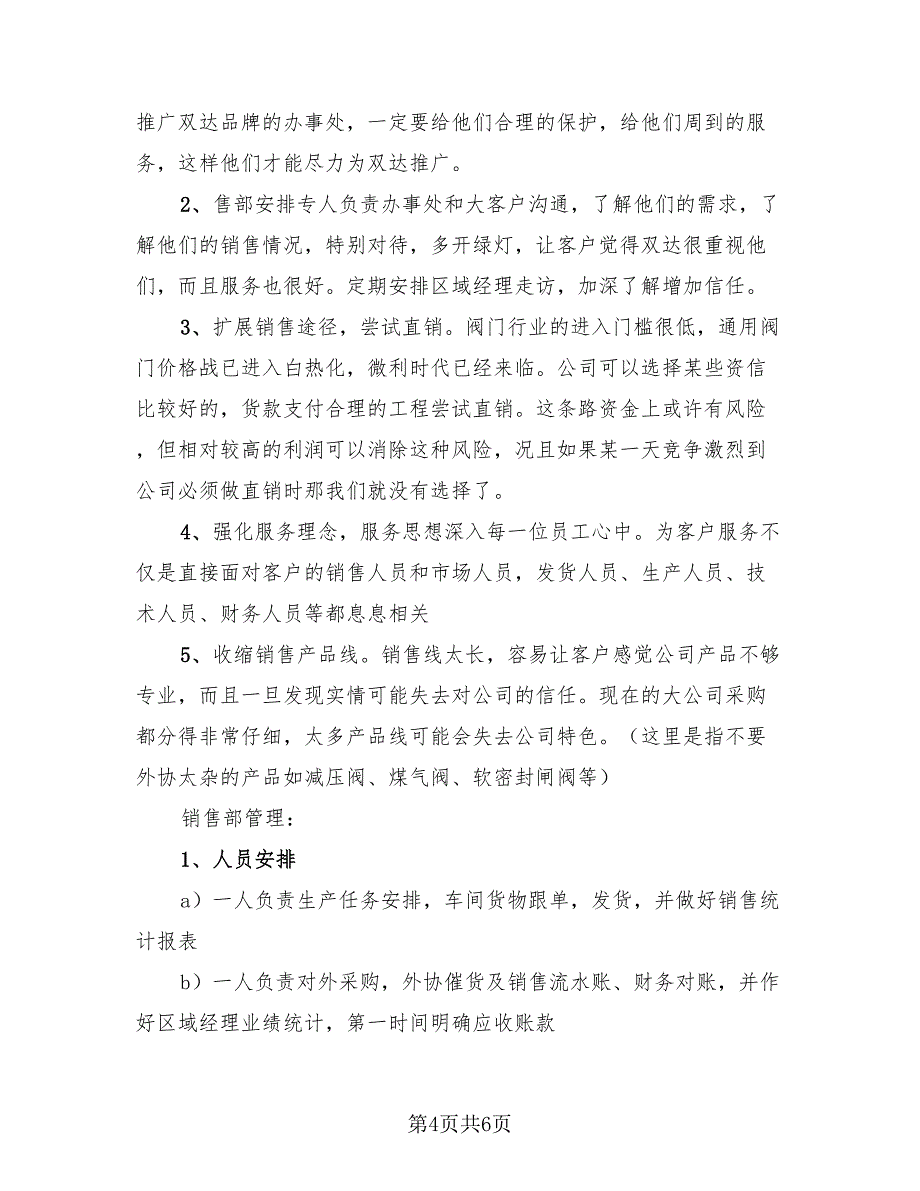 推广双达品牌的办事处，一定要给他们合理的保护，给他们周到的服
务，这样他们才能尽力为双达推广。
2、售部安排专人负责办事处和大客户沟通，了解他们的需求，了
解他们的销售情况，特别对待，多开绿灯，让客户觉得双达很重视他
们，而且服务也很好。定期安排区域经理走访，加深了解增加信任。
3、扩展销售途径，尝试直销。阀门行业的进入门槛很低，通用阀
门价格战已进入白热化，微利时代已经来临。公司可以选择某些资信
比较好的，货款支付合理的工程尝试直销。这条路资金上或许有风险
，但相对较高的利润可以消除这种风险，况且如果某一天竞争激烈到
公司必须做直销时那我们就没有选择了。
4、强化服务理念，服务思想深入每一位员工心中。为客户服务不
仅是直接面对客户的销售人员和市场人员，发货人员、生产人员、技
术人员、财务人员等都息息相关
5、收缩销售产品线。销售线太长，容易让客户感觉公司产品不够
专业，而且一旦发现实情可能失去对公司的信任。现在的大公司采购
都分得非常仔细，太多产品线可能会失去公司特色。（这里是指不要
外协太杂的产品如减压阀、煤气阀、软密封闸阀等）
销售部管理：
1、人员安排
a）一人负责生产任务安排，车间货物跟单，发货，并做好销售统
计报表
b）一人负责对外采购，外协催货及销售流水账、财务对账，并作
好区域经理业绩统计，第一时间明确应收账款
第4页共6页